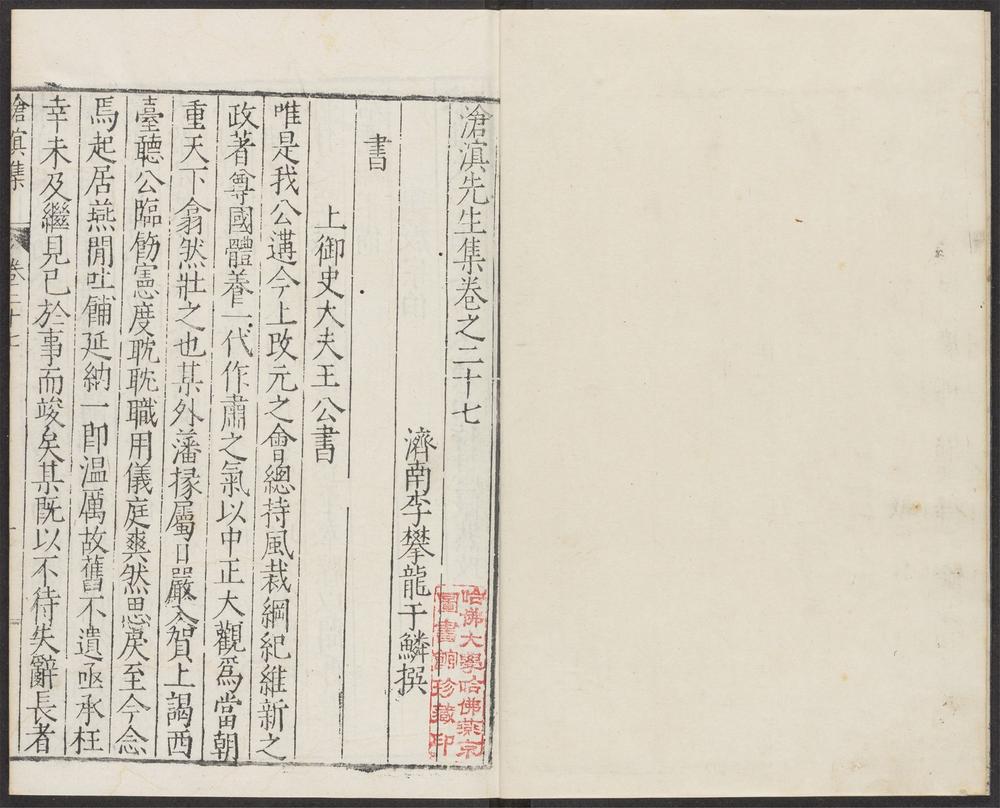 滄溟先生集卷之二十七
濟南李攀龍于鱗撰
書
上御史大夫王公書
唯是我公遘今上改元之會總持風裁綱紀維新之
政著尊國體養一代作肅之氣以中正大觀爲當朝
重天下翕然壯之也某外藩掾屬日嚴入賀上謁西
臺聽公臨飭憲度耽耽職用儀庭爽然思戾至今念
焉起居燕閒吐餔延納一卽温厲故舊不遺亟承枉
幸未及繼見已於事而竣矣某既以不待失辭長者
滄溟集
卷二十七
哈佛大學哈佛燕京
圖書館珍藏印